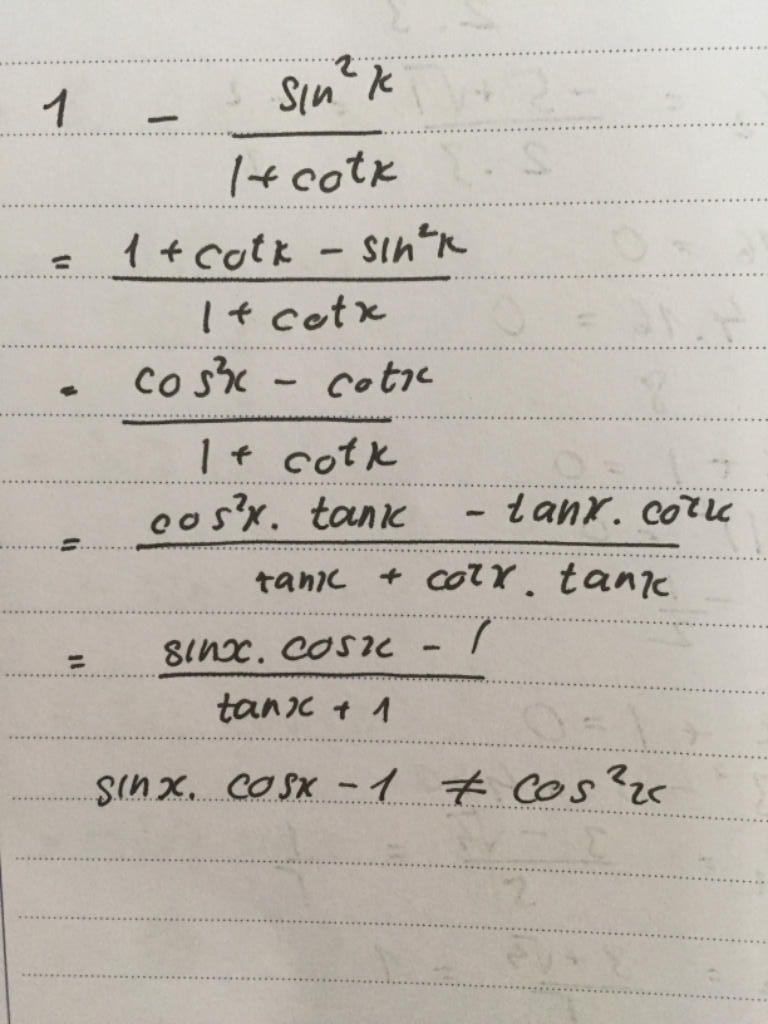 1 - sin²x
1 + cotx
= 1 + cotx - sin²x
1 + cotx
= cos²x - cotx
1 + cotx
= cos²x. tanx - tanx. cotx
tanx + cotx. tanx
= sinx. cosx - 1
tanx + 1
sinx. cosx - 1 ≠ cos²x